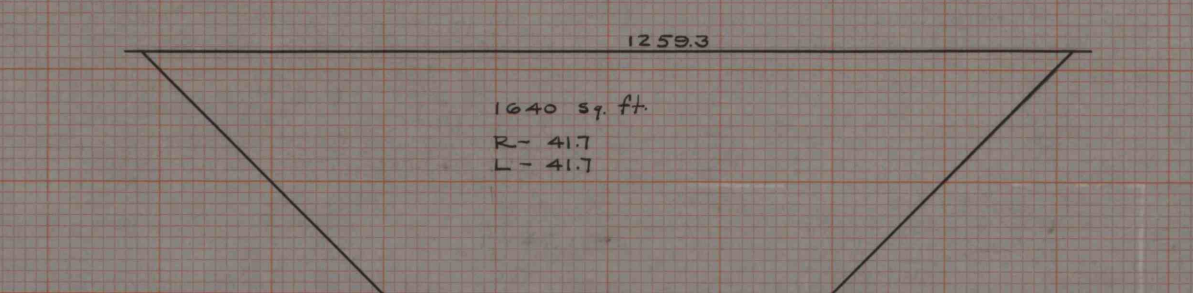 1259.3
1640 sq. ft.
R- 41.7
L- 41.7